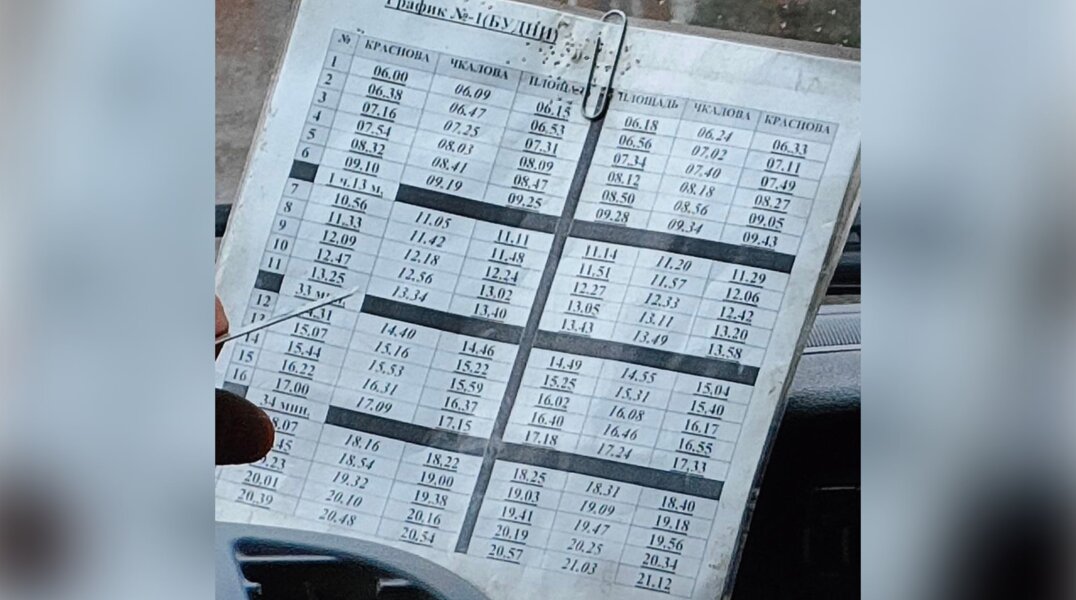 График №-1(БУДНИ)
№ КРАСНОВА ЧКАЛОВА ПЛОЩАДЬ ЧКАЛОВА КРАСНОВА
1 06.00 06.09 06.15 06.18 06.24 06.33
2 06.38 06.47 06.53 06.56 07.02 07.11
3 07.16 07.25 07.31 07.34 07.40 07.49
4 07.54 08.03 08.09 08.12 08.18 08.27
5 08.32 08.41 08.47 08.50 08.56 09.05
6 09.10 09.19 09.25 09.28 09.34 09.43
1 ч.13 м.
7 10.56 11.05 11.11 11.14 11.20 11.29
8 11.33 11.42 11.48 11.51 11.57 12.06
9 12.09 12.18 12.24 12.27 12.33 12.42
10 12.47 12.56 13.02 13.05 13.11 13.20
11 13.25 13.34 13.40 13.43 13.49 13.58
33
12 14.40 14.46 14.49 14.55 15.04
15.07 15.16 15.22 15.25 15.31 15.40
14 15.44 15.53 15.59 16.02 16.08 16.17
15 16.22 16.31 16.37 16.40 16.46 16.55
16 17.00 17.09 17.15 17.18 17.24 17.33
34 мин.
18.16 18.22 18.25 18.31 18.40
18.54 19.00 19.03 19.09 19.18
19.32 19.38 19.41 19.47 19.56
20.01 20.10 20.16 20.19 20.25 20.34
20.39 20.48 20.54 20.57 21.03 21.12